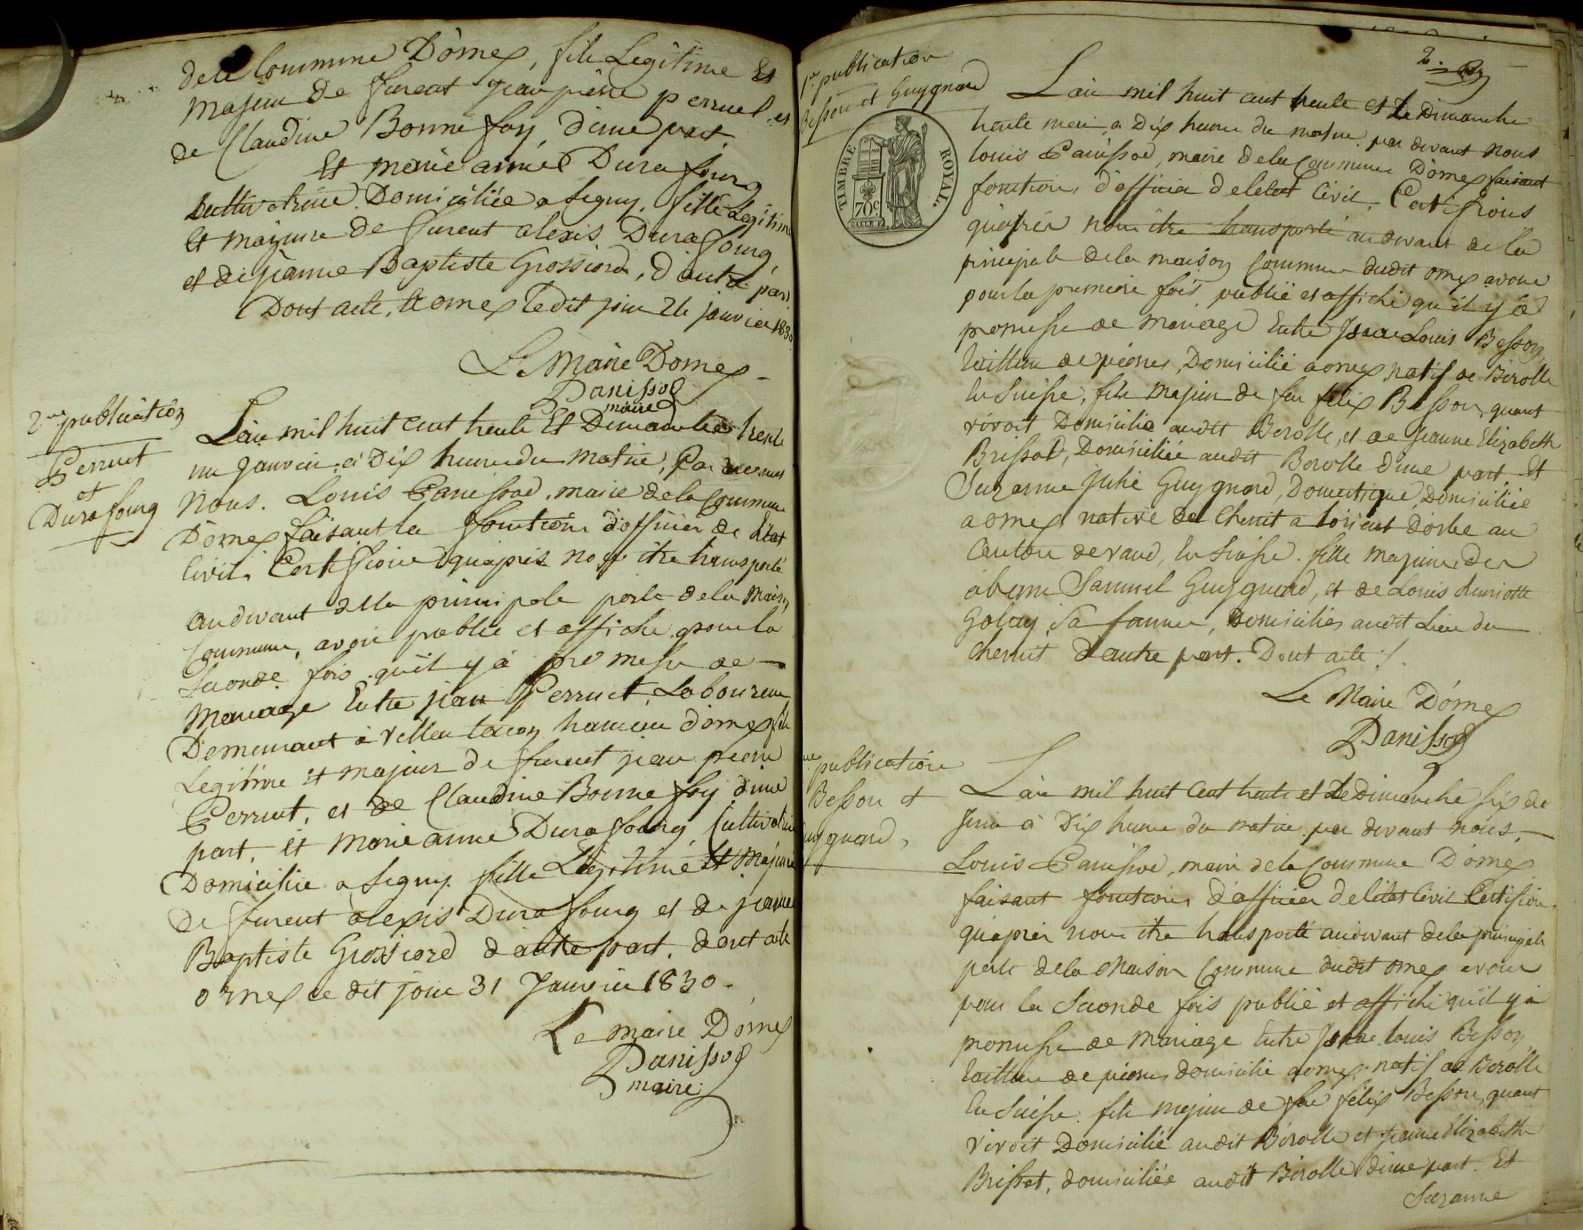 dela Commune D'ornex, fils Legitime Et
Majeur de furent jean pierre perruet, et
de Claudine Bonne foy d'une part
Et marie aimée Dura fourg
Cultivatrice Domiciliée a segny, fille Legitime
Et majeure de furent alexis Dura fourg,
et de jeanne Baptiste Grossiord, d'autre part
Dont acte, a ornex le dit jour 24 janvier 1830
Le Maire Dornex
Panissod
maire
2me publication
Perruet
et
Dura fourg
L'an mil huit cent trente Et Dimanche trente
un Janvier, à Dix heure du matin, Par devant
Nous. Louis Panissod, maire de la Commune
D'ornex faisant la fonction d'officier de l'état
Civil, Certifions qu'après nous être transporté
au devant de la principale porte de la Maison
Commune, avoir publié et affiché pour la
Seconde fois qu'il y a promesse de
Mariage Entre jean Perruet Laboureur
Demeurant à Villard tacon hameau d'ornex fils
Legitime et majeur de furent jean pierre
Perruet, et de Claudine Bonne foy d'une
part, et Marie anne Dura fourg, Cultivatrice
Domiciliée a Segny fille Légitime et Majeure
de furent alexis Dura fourg et de jeanne
Baptiste Grossiord d'autre part, dont acte
ornex ce dit jour 31 Janvier 1830.
Le maire D'ornex
Panissod
maire
2.
1re publication
Besson et Guygnard
TIMBRE ROYAL
70c
L'an mil huit cent trente et Le Dimanche
trente mai, a Dix heure du matin par devant Nous
louis Panissod, maire dela Commune D'ornex faisant
fonctions d'officier de l'etat Civil, Certifions
qu'après nous être transporté au devant de la
principale dela maison Commune dudit ornex avoir
pour la premiere fois, publié et affiché qu'il y a
promesse de Mariage Entre Louis Besson,
tailleur de pierres, Domicilié a ornex natif de Berolle
En Suisse, fils Majeur de feu felix Besson, quant
vivoit Domicilié audit Berolle, et de Jeanne Elizabeth
Brissod, Domiciliée audit Berolle d'une part, Et
Suzanne Julie Guygnard, Domestique, domiciliée
a ornex native de Chenit a l'orient d'orbe au
Canton de vaud, En Suisse. fille majeure de
abram Samuel Guygnard, et de Louis Henriette
Golay, Sa femme, domiciliés audit Lieu du
Chenit d'autre part. Dont acte /.
Le Maire D'ornex
Panissod
publication
Besson et
Guygnard,
L'an mil huit Cent trente et Le dimanche six de
Juin à Dix heure du matin par devant nous,
Louis Panissod, maire dela Commune D'ornex
faisant fonctions d'officier de l'état Civil Certifions
qu'après nous être transporté au devant dela principale
porte dela Maison Commune dudit ornex avoir
pour la Seconde fois publié et affiché qu'il y a
promesse de Mariage Entre louis Besson,
tailleur de pierres, domicilié a ornex, natif de Berolle
En Suisse, fils majeur de feu félix Besson, quant
vivoit Domicilié audit Bérolle et Jeanne Elizabethe
Brissot, domiciliée audit Bérolle d'une part. Et
Suzanne